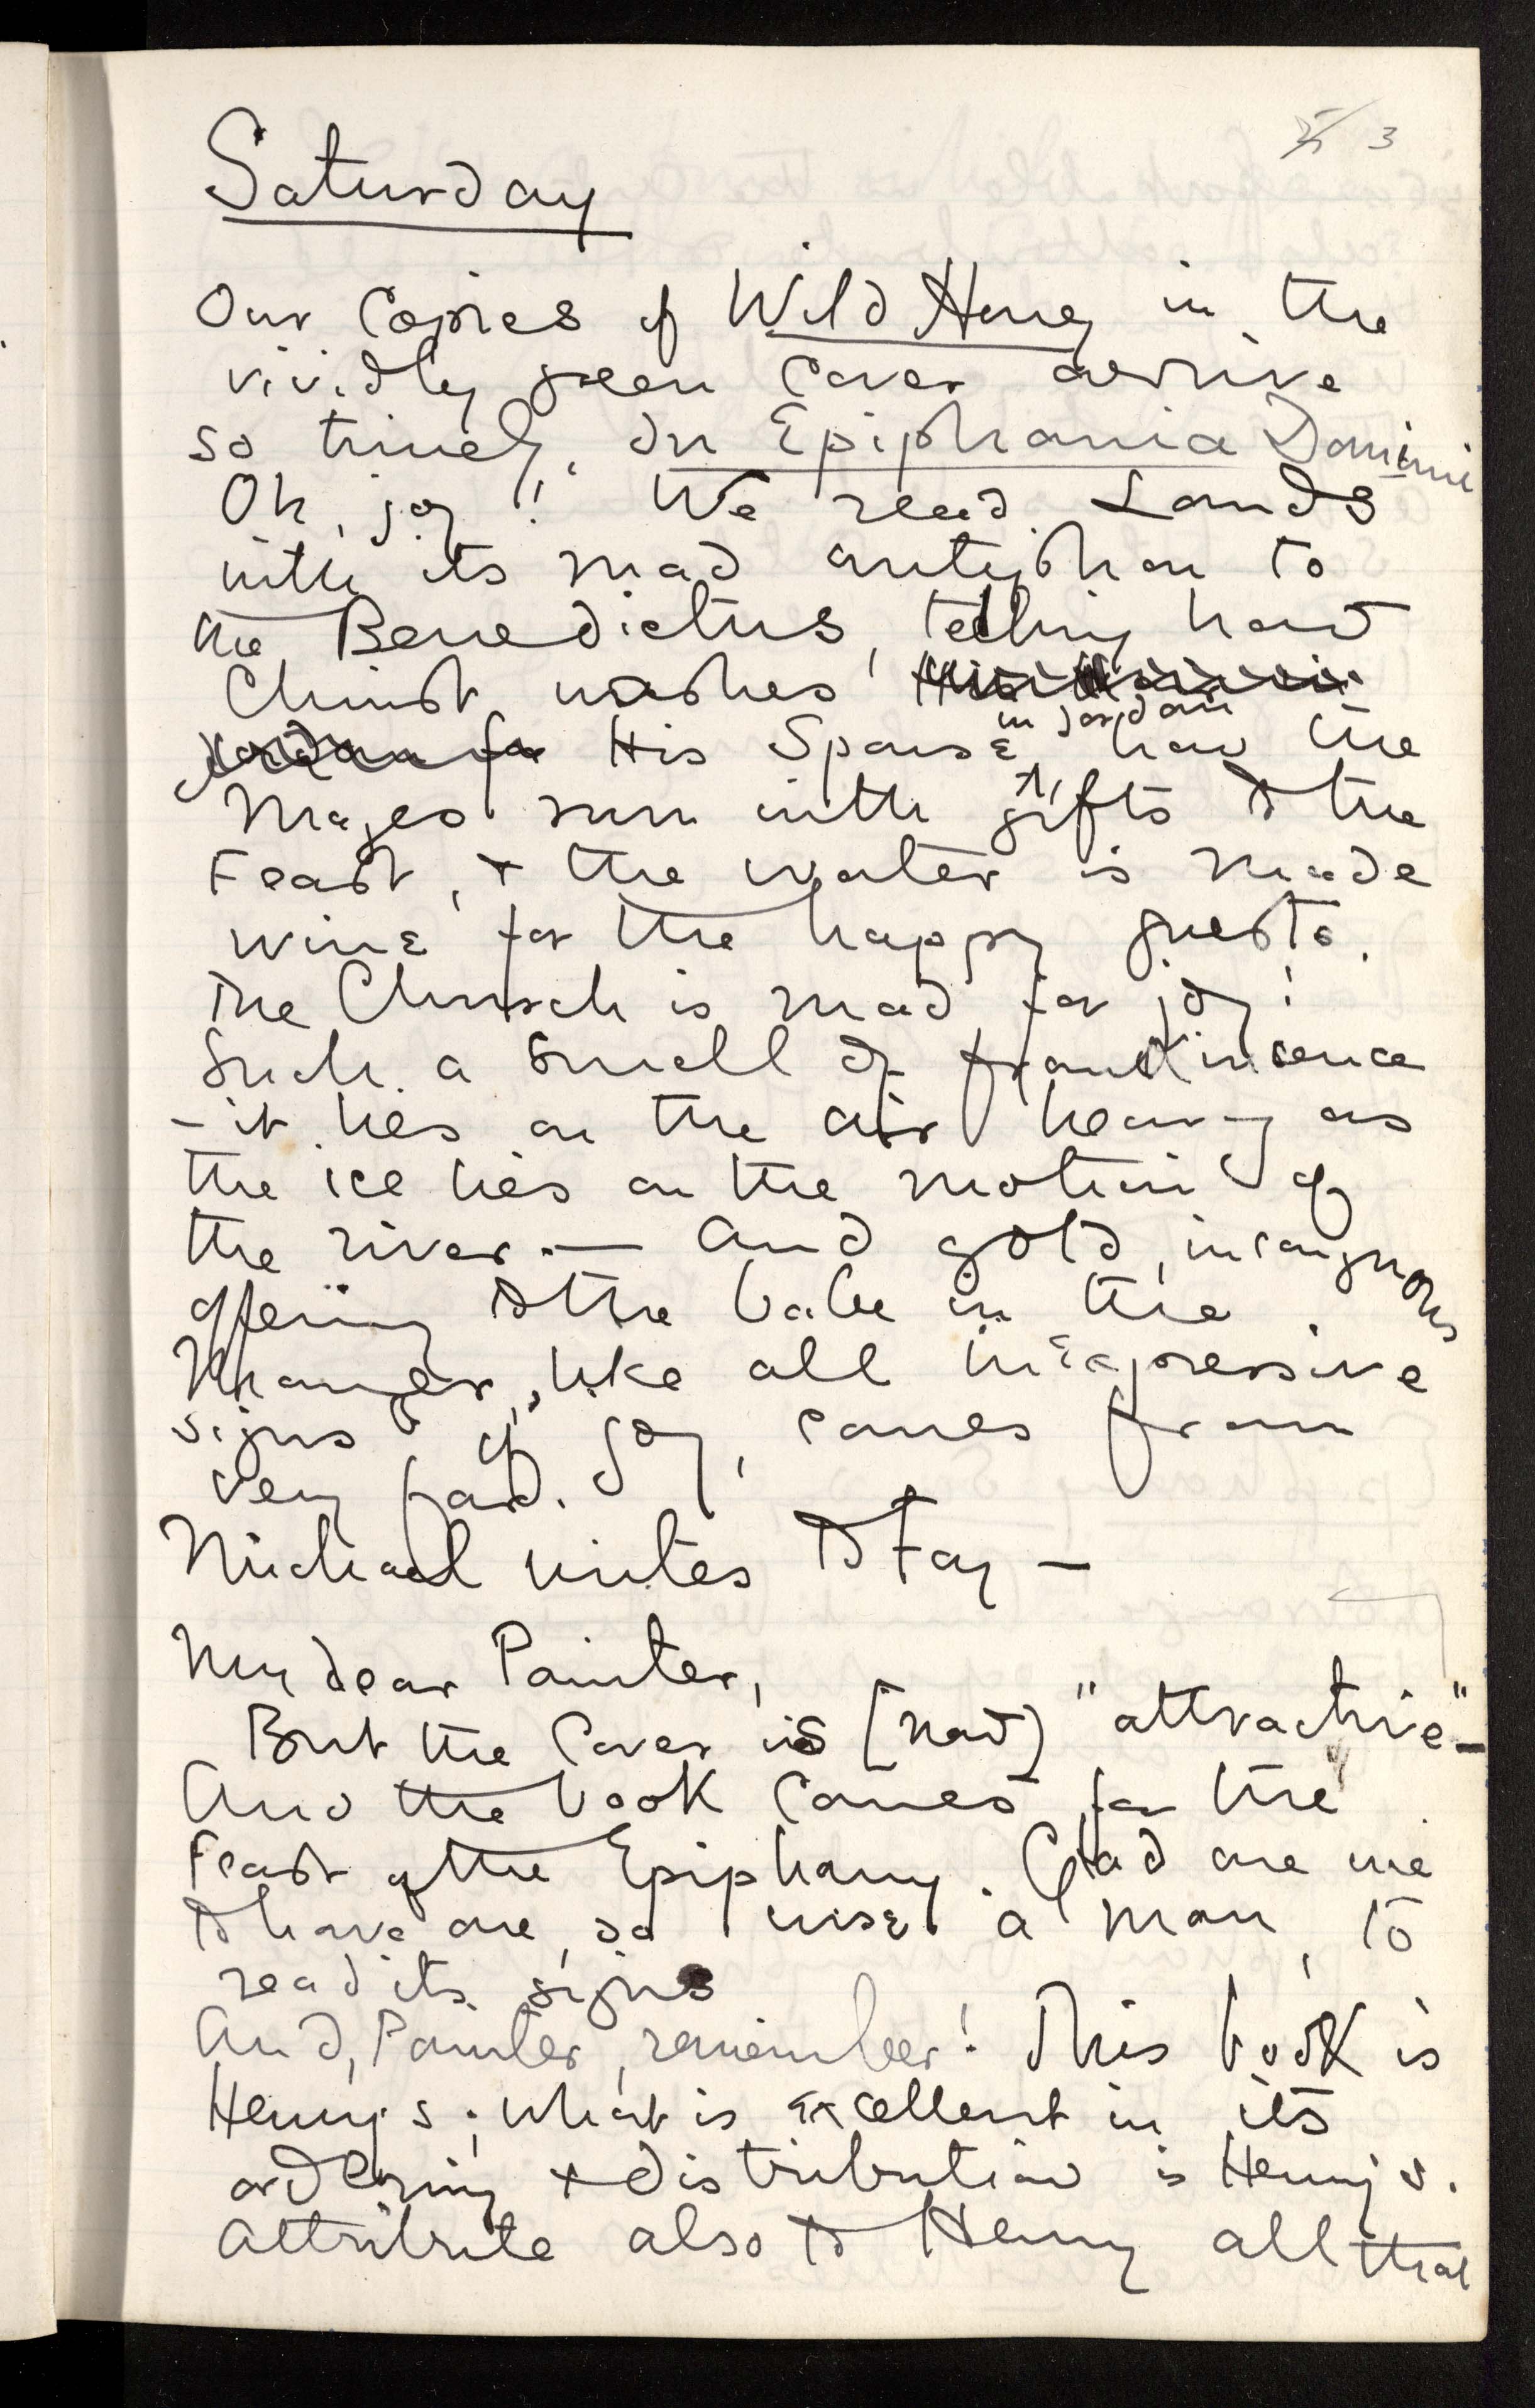 3
Saturday
Our Copies of Wild Honey in the
vividly green Cover arrive
so timely, In Epiphania Domini
Oh, joy! We read Lauds
with its mad antiphon to
the Benedictus, telling how
Christ washes
Jordan for His Spouse in Jordan how the
Mages run with gifts to the
Feast, + the water is made
wine for the happy guests.
The Church is mad for joy!
Such a smell of frankincence
- it lies on the air heavy as
the ice lies on the motion of
the river. — And gold, incongruous
offering to the babe in the
Manger, like all inexpressive
signs of joy, comes from
very far.
Michael writes to Fay —
My dear Painter,
But the Cover is [not] "attractive" -
And the book comes for the
Feast of the Epiphany. Glad are we
to have one, so wise a man, to
read its signs
And, Painter, remember! This book is
Henry's; what is excellent in its
ordering + distribution is Henry's.
Attribute also to Henry all that